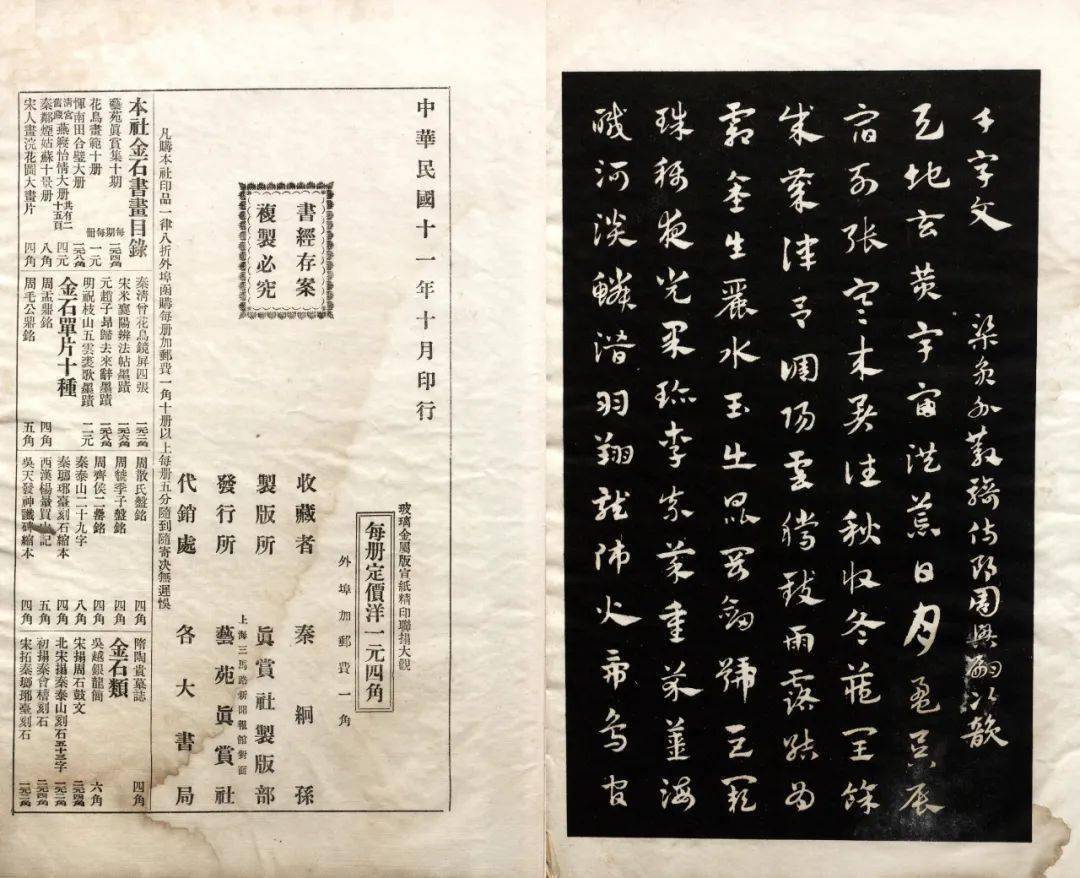 千字文 梁員外散騎侍郎周興嗣次韻
天地玄黃宇宙洪荒日月盈昃辰
宿列張寒來暑往秋收冬藏閏餘
成歲律呂調陽雲騰致雨露結為
霜金生麗水玉出崑岡劍號巨闕
珠稱夜光果珍李柰菜重芥薑海
鹹河淡鱗潛羽翔龍師火帝鳥官
中華民國十一年十月印行
書經存案
複製必究
玻璃金屬版宣紙精印聯揖大觀
每册定價洋一元四角
外埠加郵費一角
收藏者 秦絅孫
製版所 眞賞社製版部
上海三馬路新聞報館對面
發行所 藝苑眞賞社
代銷處 各大書局
凡購本社印品一律八折外埠函購每册加郵費一角十册以上每册五分隨到隨寄决無遲悞
本社金石書畫目錄
藝苑眞賞集十期 每期
花鳥畫範十册 每册 一元
惲南田合璧大册
清宮舊藏燕寢怡情大册共有二十五頁 四元
秦鄰煙姑蘇十景册 八角
宋人畫浣花圖大畫片 四角
秦清曾花鳥鏡屏四張 一元二角
宋米襄陽辨法帖墨蹟 一元六角
元趙子昂歸去來辭墨蹟 一元八角
明祝枝山五雲裘歌墨蹟 二元
金石單片十種
周盂鼎銘 四角
周毛公鼎銘 五角
周散氏盤銘 四角
周虢季子盤銘 四角
周齊侯二罍銘 四角
秦泰山二十九字 八角
秦瑯琊臺刻石縮本 四角
西漢楊量買山記 五角
吳天發神讖碑縮本 四角
隋陶貴墓誌 四角
金石類
吳越銀龍簡 六角
宋搨周石鼓文 二元四角
北宋搨秦泰山刻石五十三字 一元二角
初搨秦會稽刻石 二元四角
宋拓秦瑯琊臺刻石 一元二角